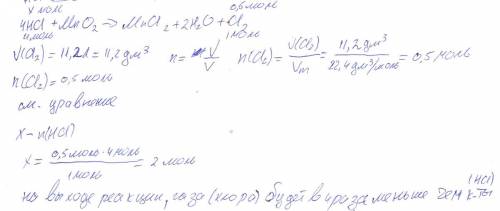 x моль 0,5 моль
4HCl + MnO₂ => MnCl₂ + 2H₂O + Cl₂
4моль 1моль
V(Cl₂) = 11,2л = 11,2 дм³ n = V/V n(Cl₂) = V(Cl₂)/Vm = 11,2 дм³/22,4 дм³/моль = 0,5 моль
n(Cl₂) = 0,5 моль
см. уравнение
x – n(HCl)
x = 0,5моль · 4моль / 1моль = 2 моль
на выходе реакции, газа (хлора) будет в 4 раза меньше чем к-ты (HCl)